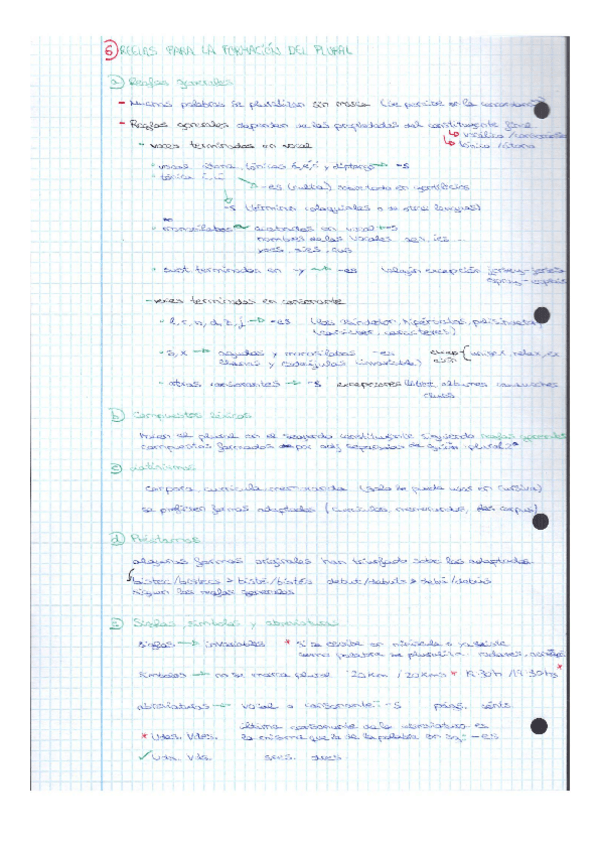 6 REGLAS PARA LA FORMACIÓN DEL PLURAL
a) Reglas generales
- Muchas palabras se pluralizan sin marca (se percibe en la concordancia)
- Reglas generales dependen de las propiedades del constituyente final
↳ vocálico/consonante
↳ tónico/átono
- voces terminadas en vocal
· vocal átona, tónicas á, é, ó y diptongo → -s
· tónica í, ú
→ -es (culta) mayoritario en gentilicios
→ -s (término coloquiales o de otras lenguas)
· monosílabos acabados en vocal → s
nombres de las vocales aes, íes ...
yoes, síes, noes
· sust terminados en -y → -es (algún excepción jersey-jerséis
espray-espráis
- voces terminadas en consonante
· l, r, n, d, z, j → -es
(caracteres)
· s, x → agudas y monosílabos -es
llanas y esdrújulas invariable)
· otras consonantes → -s excepciones álbumes
clubes
b) Compuestos léxicos
Hacen el plural en el segundo constituyente siguiendo reglas generales
compuestos formados por adj separados de guion -plural 2º
c) Latinismos
corpora, curricula, memoranda (solo se puede usar en cursiva)
se prefieren formas adaptadas (currículos, memorandos, los corpus)
d) Préstamos
algunas formas originales han triunfado sobre las adaptadas
bistec/bistecs > bisté/bistés debut/debuts > debú/debús
siguen las reglas generales
e) Siglas, símbolos y abreviaturas
siglas → invariables * si se escribe en minúscula
como palabra se pluraliza radares,
símbolos → no se marca plural 20 km / 20 kms * 19:30 h / 19:30 hs *
abreviaturas → vocal o consonante: -s págs. cénts
última consonante de la abreviatura es
* Udes. Vdes. la misma que la de la palabra en sg: -es
✓ Uds. Vds. sres. dres.